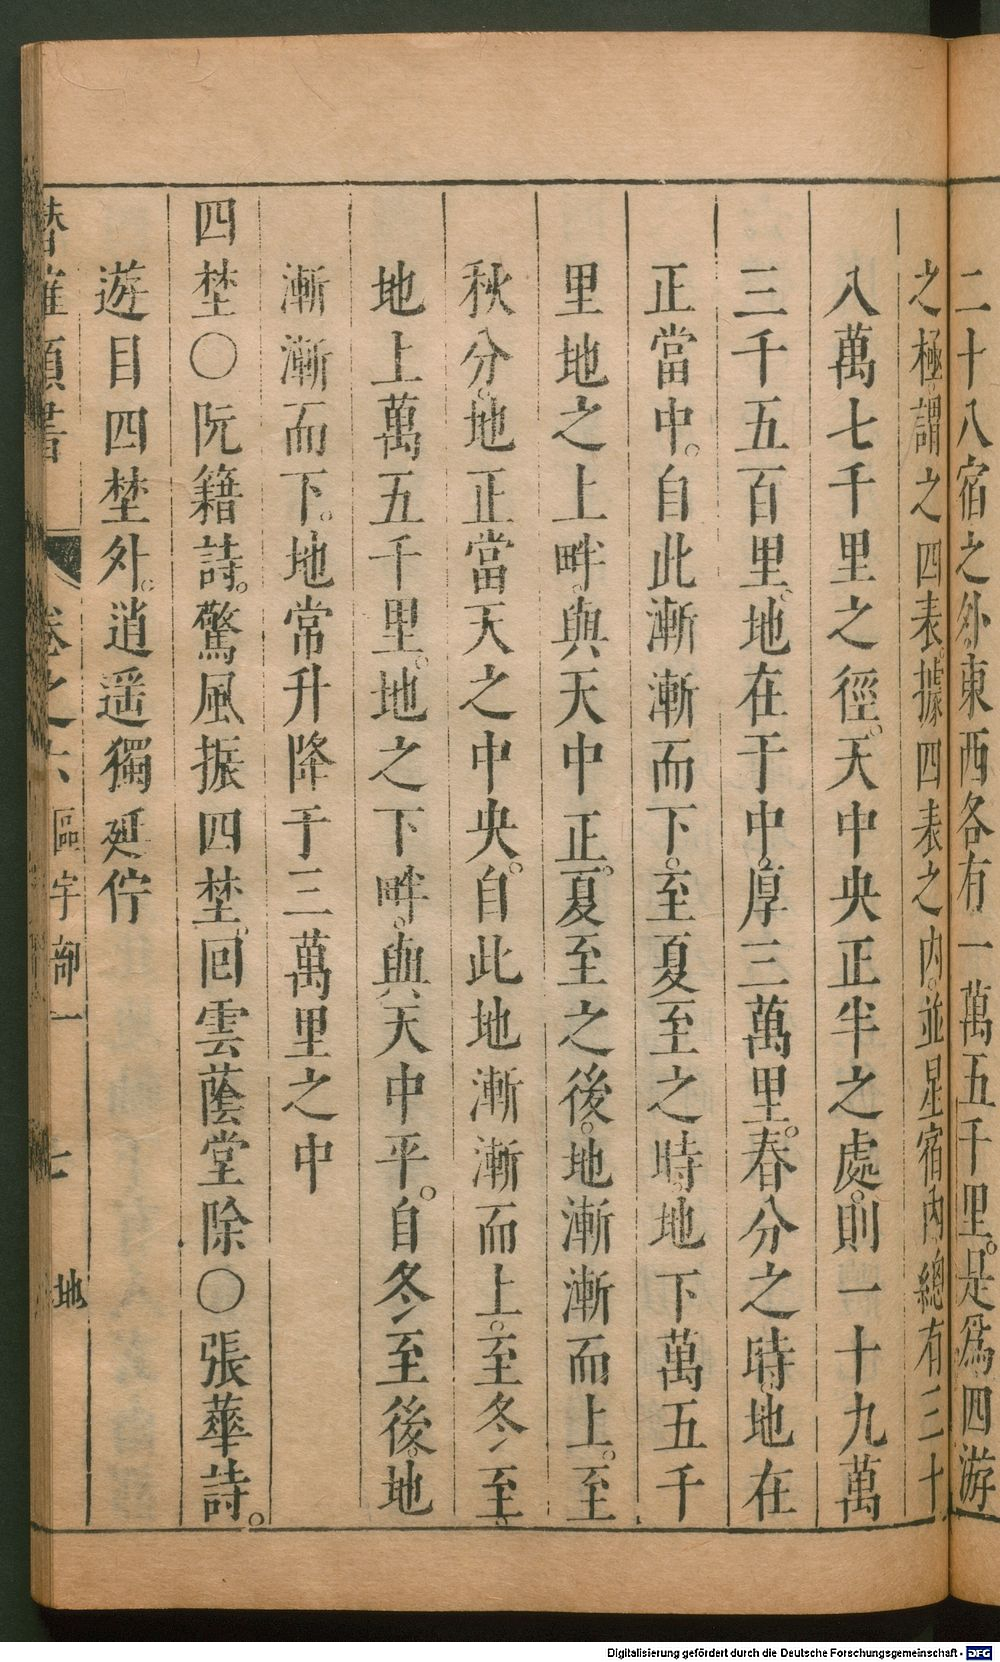 二十八宿之外。東西各有一萬五千里。是爲四游
之極。謂之四表。據四表之內。並星宿內總有三十
八萬七千里之徑。天中央正半之處。則一十九萬
三千五百里。地在于中。厚三萬里。春分之時。地在
正當中。自此漸漸而下。至夏至之時。地下萬五千
里地之上畔。與天中正。夏至之後。地漸漸而上。至
秋分。地正當天之中央。自此地漸漸而上。至冬至。
地上萬五千里。地之下畔。與天中平。自冬至後。地
漸漸而下。地常升降于三萬里之中
四埜〇阮籍詩。驚風振四埜。回雲蔭堂除〇張華詩。
遊目四埜外。逍遥獨延佇
類書 卷之六 區宇部一 七 地
Digitalisierung gefördert durch die Deutsche Forschungsgemeinschaft - DFG